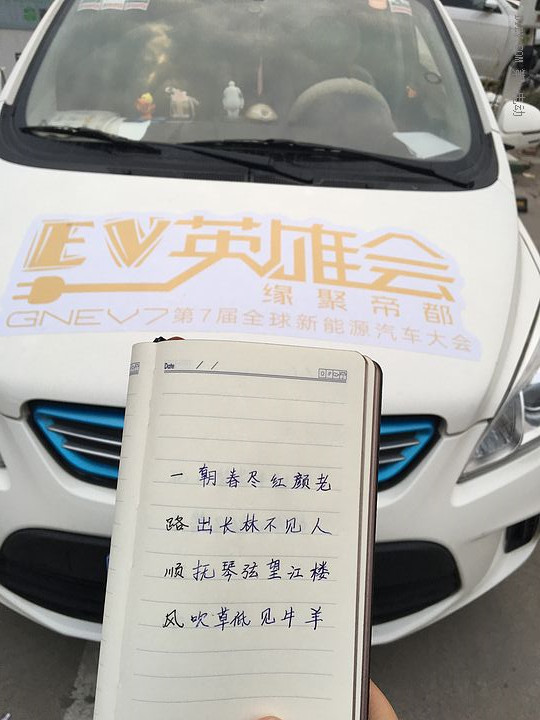 EV英雄会
缘聚帝都
GNEV7第7届全球新能源汽车大会
Date / /
一朝春尽红颜老
路出长林不见人
顺抚琴弦望江楼
风吹草低见牛羊